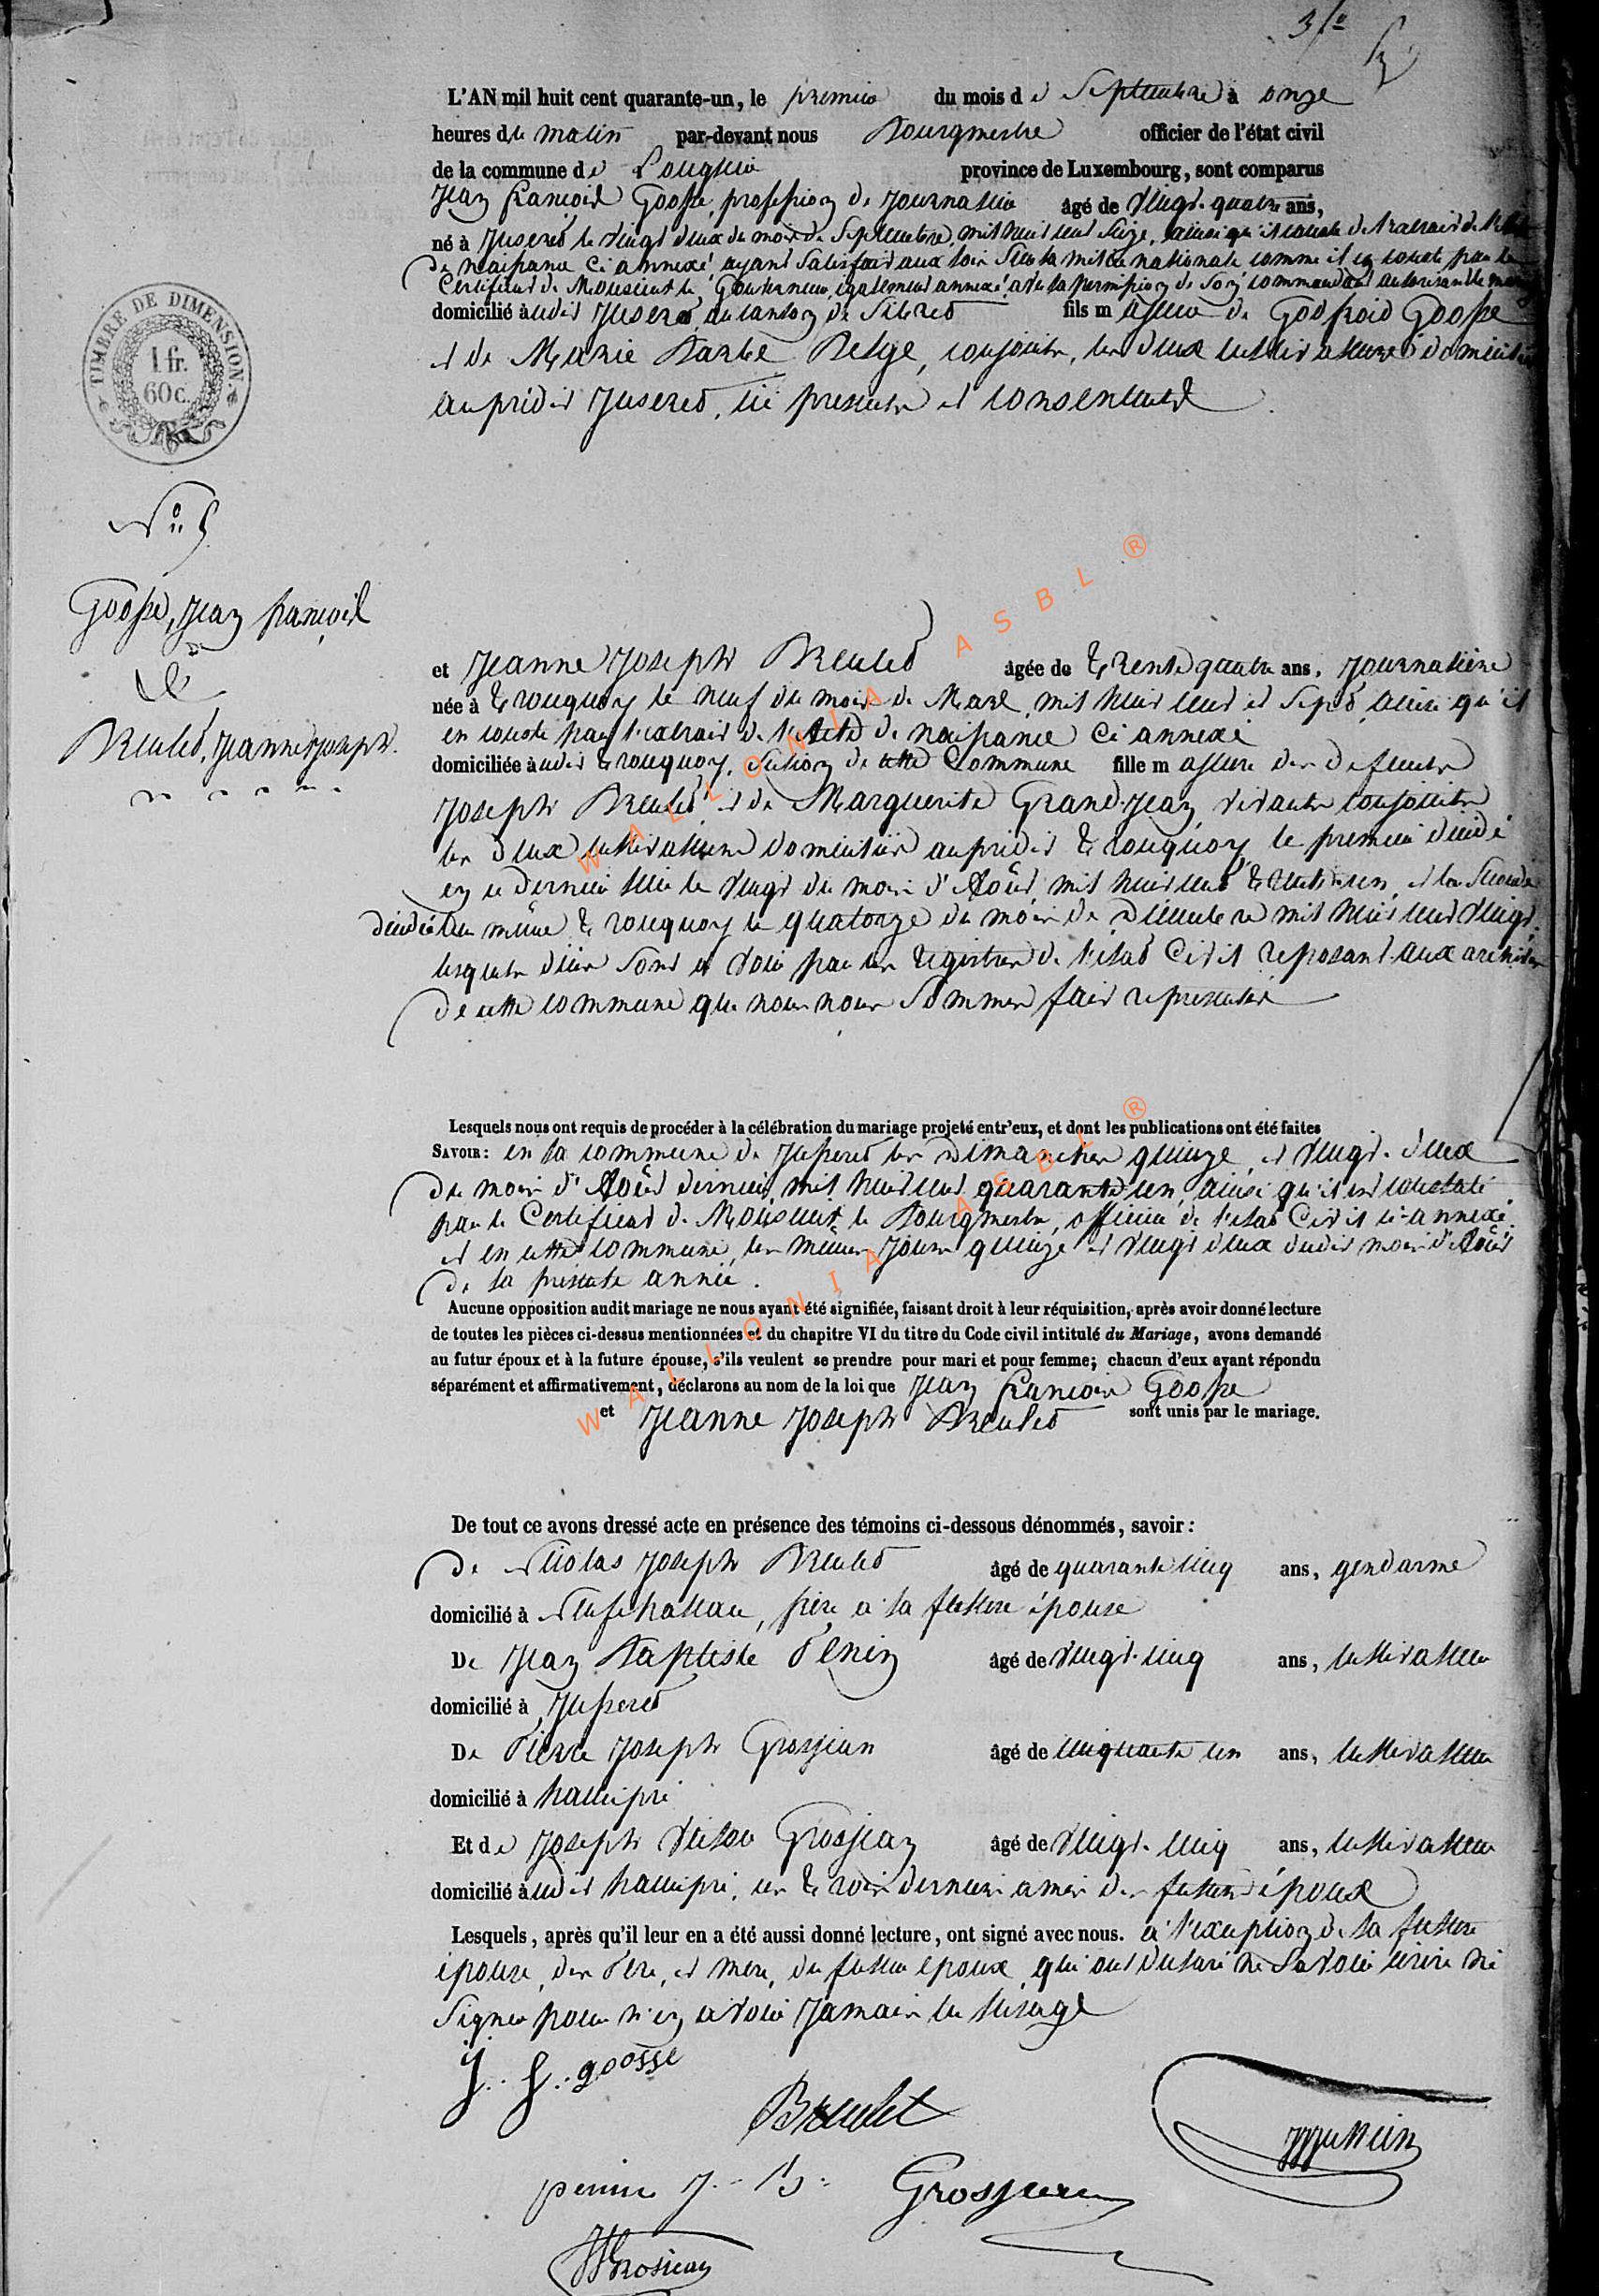 L'AN mil huit cent quarante-un, le premier du mois de Septembre à onze
heures du matin par-devant nous Bourgmestre officier de l'état civil
de la commune de province de Luxembourg, sont comparus
Jean François Goosse, profession de journalier âgé de vingt-quatre ans,
né à Juseret le vingt deux du mois de Septembre, mil huit cent seize, ainsi qu'il conste de l'extrait de
de naissance ci annexé, ayant satisfait aux lois sur la milice nationale comme il en conste par le
Certificat de Monsieur le Gouverneur, également annexé, et de la permission de son commandant autorisant le
domicilié audit Juseret, au canton de Sibret fils majeur de Godfroid Goosse
et de Marie Barbe Belge, conjoints, les deux cultivateurs domiciliés
au prédit Juseret, ici présents et consentants
TIMBRE DE DIMENSION.
1 fr.
60 c.
N° 5
Goosse, Jean françois
&
Breulet, Jeanne Joseph.
et Jeanne Joseph Breulet âgée de trente quatre ans, journalière
née à Tronquoy le neuf du mois de Mars, mil huit cent et sept, ainsi qu'il
en conste par l'extrait de l'acte de naissance ci annexé
domiciliée audit Tronquoy, section de cette Commune fille majeure des défunts
Joseph Breulet et de Marguerite Grand-Jean, vivants conjoints
les deux cultivateurs domiciliés au prédit Tronquoy, le premier décédé
en ce dernier lieu le vingt du mois d'Août mil huit cent trente un, et la seconde
décédée au même Tronquoy le quatorze du mois de Décembre mil huit cent vingt.
lesquels décès sont à voir par les registres de l'état Civil reposant aux archives
de cette commune que nous nous sommes fait représenter
Lesquels nous ont requis de procéder à la célébration du mariage projeté entr'eux, et dont les publications ont été faites
SAVOIR: en la commune de Jusseret les Dimanches quinze et vingt-deux
du mois d'Août dernier, mil huit cent quarante un, ainsi qu'il est constaté
par le Certificat de Monsieur le Bourgmestre, officier de l'état Civil ci-annexé
et en cette commune, les mêmes jours quinze et vingt deux dudit mois d'Août
de la présente année.
Aucune opposition audit mariage ne nous ayant été signifiée, faisant droit à leur réquisition, après avoir donné lecture
de toutes les pièces ci-dessus mentionnées et du chapitre VI du titre du Code civil intitulé du Mariage, avons demandé
au futur époux et à la future épouse, s'ils veulent se prendre pour mari et pour femme; chacun d'eux ayant répondu
séparément et affirmativement, déclarons au nom de la loi que Jean François Goosse
et Jeanne Joseph Breulet sont unis par le mariage.
De tout ce avons dressé acte en présence des témoins ci-dessous dénommés, savoir:
De Nicolas Joseph Breulet âgé de quarante cinq ans, gendarme
domicilié à Neufchateau, frère a la future épouse
De Jean Baptiste Penin âgé de vingt-cinq ans, cultivateur
domicilié à Jusseret
De Pierre Joseph Grosjean âgé de cinquante un ans, cultivateur
domicilié à hamipré
Et de Joseph Victor Grosjean âgé de vingt-cinq ans, cultivateur
domicilié audit hamipré, les trois derniers amis des futurs époux
Lesquels, après qu'il leur en a été aussi donné lecture, ont signé avec nous. à l'exception de la future
épouse, des Père, et mère, du futur époux, qui ont déclaré ne savoir écrire ni
signer pour n'en avoir jamais eu l'usage
J. f. goosse
Breulet
penin J. B.
Grosjean
Grosjean
WALLONIA ASBL ®
WALLONIA ASBL ®